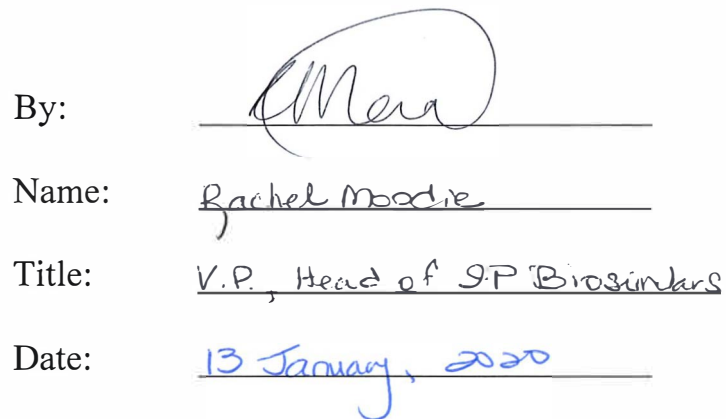 By:
Name: Rachel Moodie
Title: V.P., Head of IP Biosimilars
Date: 13 January, 2020